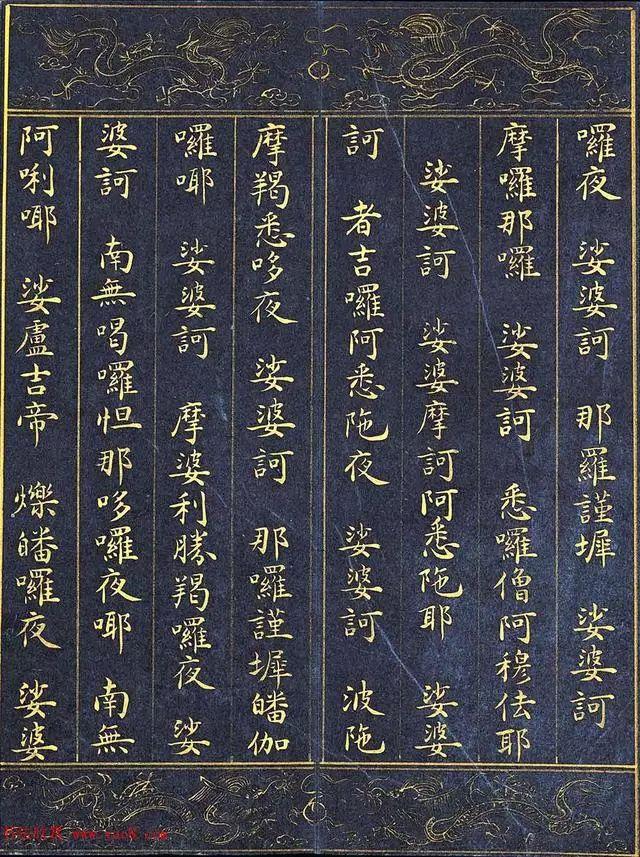 囉夜　娑婆訶　那羅謹墀　娑婆訶
摩囉那囉　娑婆訶　悉囉僧阿穆佉耶
娑婆訶　娑婆摩訶阿悉陁耶　娑婆
訶　者吉囉阿悉陁夜　娑婆訶　波陁
摩羯悉哆夜　娑婆訶　那囉謹墀皤伽
囉㖿　娑婆訶　摩婆利勝羯囉夜　娑
婆訶　南無喝囉怛那哆囉夜㖿　南無
阿唎㖿　娑盧吉帝　爍皤囉夜　娑婆